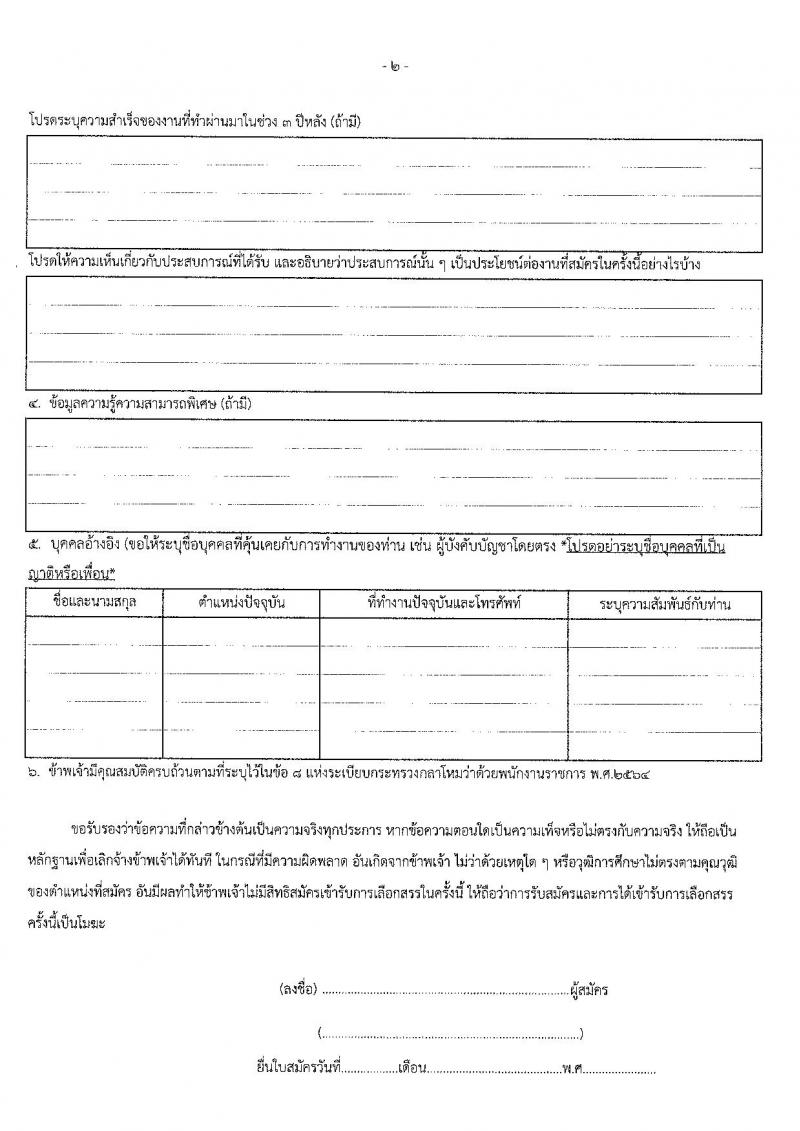 - ๒ -
โปรดระบุความสำเร็จของงานที่ทำผ่านมาในช่วง ๓ ปีหลัง (ถ้ามี)
โปรดให้ความเห็นเกี่ยวกับประสบการณ์ที่ได้รับ และอธิบายว่าประสบการณ์นั้น ๆ เป็นประโยชน์ต่องานที่สมัครในครั้งนี้อย่างไรบ้าง
๔. ข้อมูลความรู้ความสามารถพิเศษ (ถ้ามี)
๕. บุคคลอ้างอิง (ขอให้ระบุชื่อบุคคลที่คุ้นเคยกับการทำงานของท่าน เช่น ผู้บังคับบัญชาโดยตรง *โปรดอย่าระบุชื่อบุคคลที่เป็น
ญาติหรือเพื่อน*
ชื่อและนามสกุล ตำแหน่งปัจจุบัน ที่ทำงานปัจจุบันและโทรศัพท์ ระบุความสัมพันธ์กับท่าน
๖. ข้าพเจ้ามีคุณสมบัติครบถ้วนตามที่ระบุไว้ในข้อ ๘ แห่งระเบียบกระทรวงกลาโหมว่าด้วยพนักงานราชการ พ.ศ.๒๕๖๔
ขอรับรองว่าข้อความที่กล่าวข้างต้นเป็นความจริงทุกประการ หากข้อความตอนใดเป็นความเท็จหรือไม่ตรงกับความจริง ให้ถือเป็น
หลักฐานเพื่อเลิกจ้างข้าพเจ้าได้ทันที ในกรณีที่มีความผิดพลาด อันเกิดจากข้าพเจ้า ไม่ว่าด้วยเหตุใด ๆ หรือวุฒิการศึกษาไม่ตรงตามคุณวุฒิ
ของตำแหน่งที่สมัคร อันมีผลทำให้ข้าพเจ้าไม่มีสิทธิสมัครเข้ารับการเลือกสรรในครั้งนี้ ให้ถือว่าการรับสมัครและการได้เข้ารับการเลือกสรร
ครั้งนี้เป็นโมฆะ
(ลงชื่อ) ................................................................ผู้สมัคร
(..................................................................)
ยื่นใบสมัครวันที่..................เดือน....................................พ.ศ....................